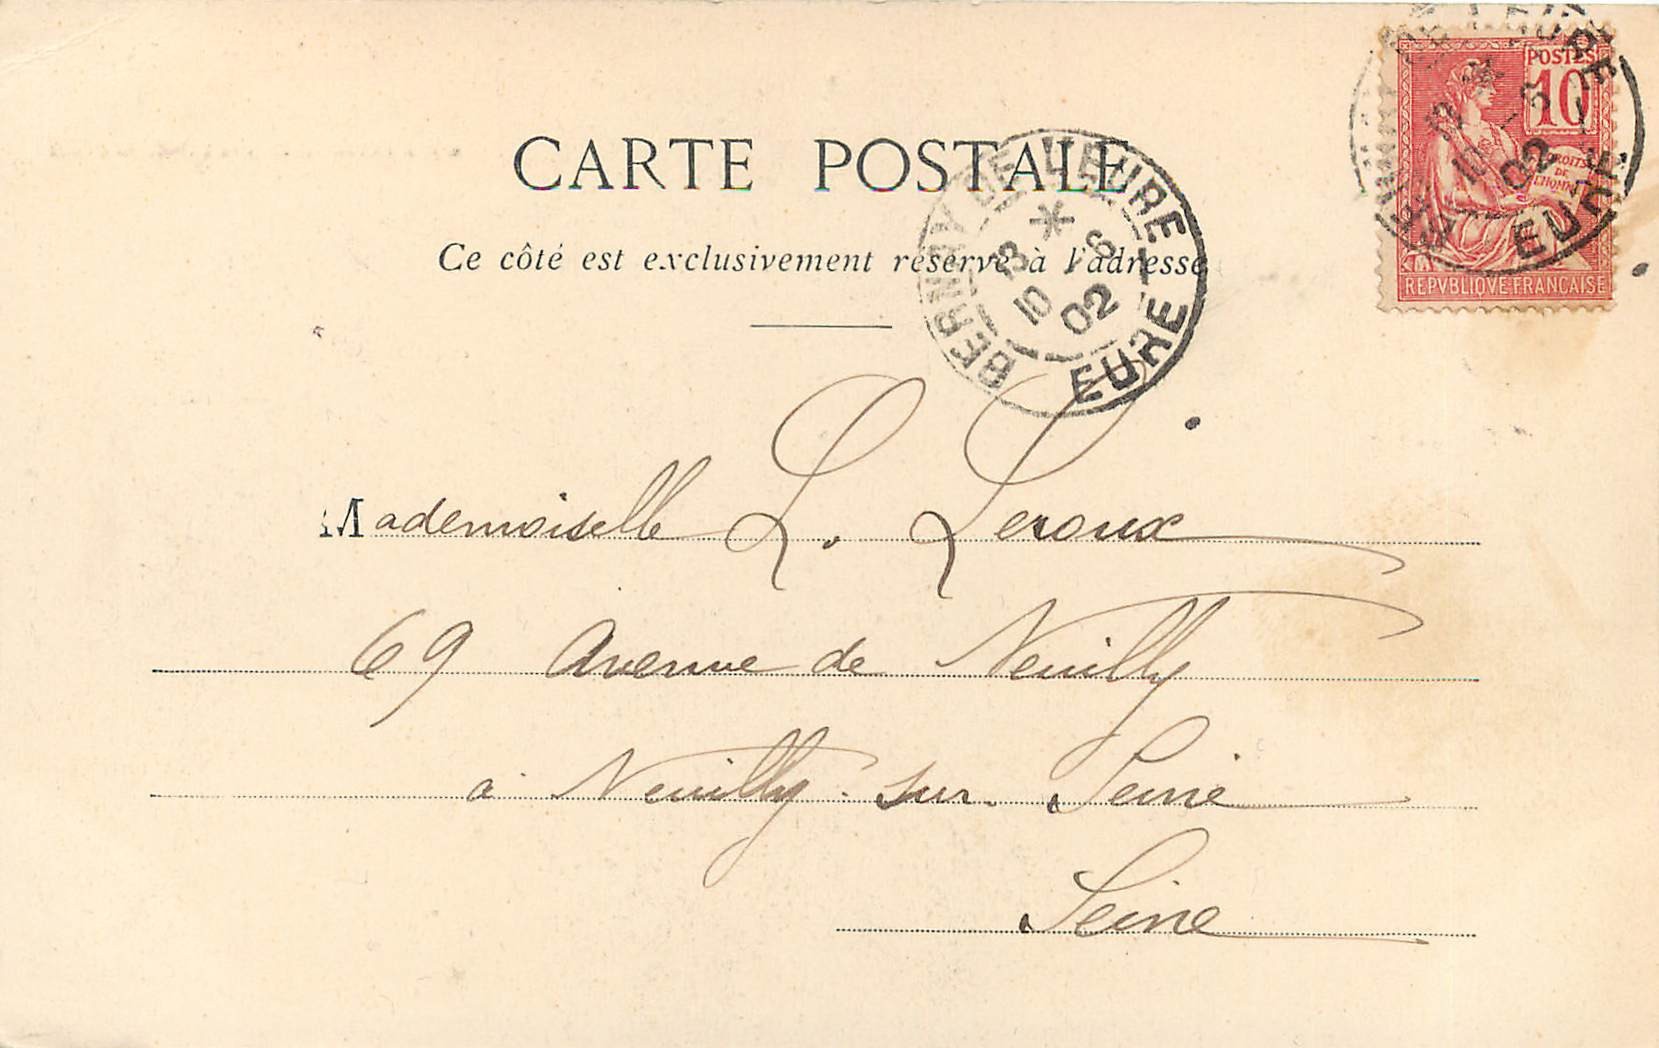 CARTE POSTALE
Ce côté est exclusivement réservé à l'adresse
BERNAY DE L'EURE
10 -6
02
EURE
POSTES
10
DROITS
DE
L'HOMME
REPVBLIQVE FRANÇAISE
DE L'EURE
12
10 -6
02
EURE
Mademoiselle L. Leroux
69 Avenue de Neuilly
à Neuilly-sur-Seine
Seine